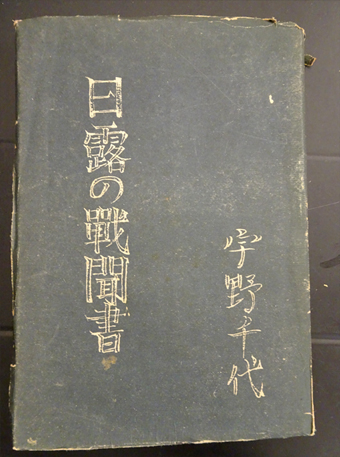 日露の戰聞書
宇野千代